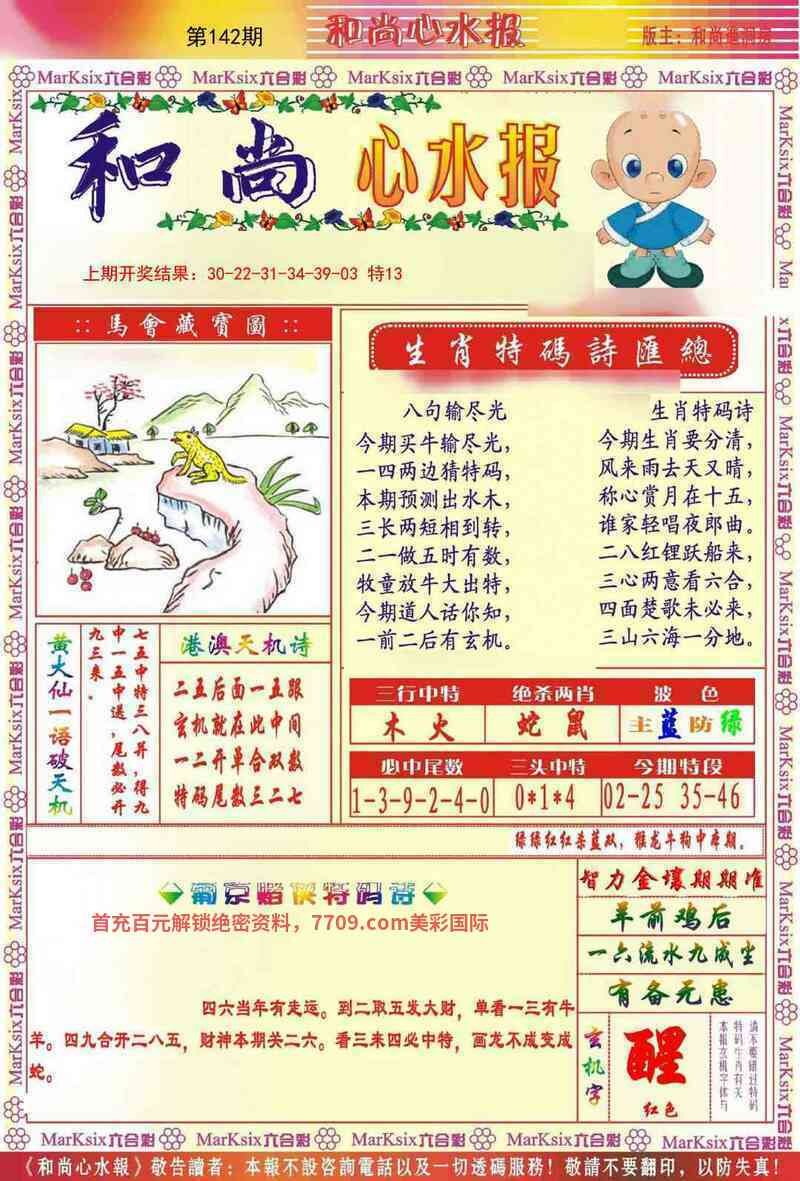 第142期
和尚心水报
MarKsix六合彩 MarKsix六合彩 MarKsix六合彩 MarKsix六合彩 MarKsix六合彩
和尚 心水报
上期开奖结果：30-22-31-34-39-03 特13
:: 馬會藏寶圖 ::
生肖特碼詩匯總
八句输尽光
今期买牛输尽光，
一四两边猜特码，
本期预测出水木，
三长两短相到转，
二一做五时有数，
牧童放牛大出特，
今期道人话你知，
一前二后有玄机。
生肖特码诗
今期生肖要分清，
风来雨去天又晴，
称心赏月在十五，
谁家轻唱夜郎曲。
二八红锂跃船来，
三心两意看六合，
四面楚歌未必来，
三山六海一分地。
黄大仙一语破天机
七五中特三八并，得九
中一五中送，尾数必开
九三来。
港澳天机诗
二五后面一五跟
玄机就在此中间
一二开单合双数
特码尾数三二七
三行中特 绝杀两肖 波色
木火 蛇鼠 主蓝防绿
必中尾数 三头中特 今期特段
1-3-9-2-4-0 0*1*4 02-25 35-46
绿绿红红杀蓝双，猴龙牛狗中本期。
葡京赌侠特码诗
首充百元解锁绝密资料，7709.com美彩国际
四六当年有走运。到二取五发大财，单看一三有牛
羊。四九合开二八五，财神本期关二六。看三来四必中特，画龙不成变成
蛇。
智力金壤期期准
羊前鸡后
一六流水九成尘
有备无患
玄机字
醒
红色
请不要错过特码
特码生肖有关
本报玄机字体与
MarKsix六合彩 MarKsix六合彩 MarKsix六合彩 MarKsix六合彩 MarKsix六合彩
《和尚心水報》敬告讀者：本報不設咨詢電話以及一切透碼服務！敬請不要翻印，以防失真！